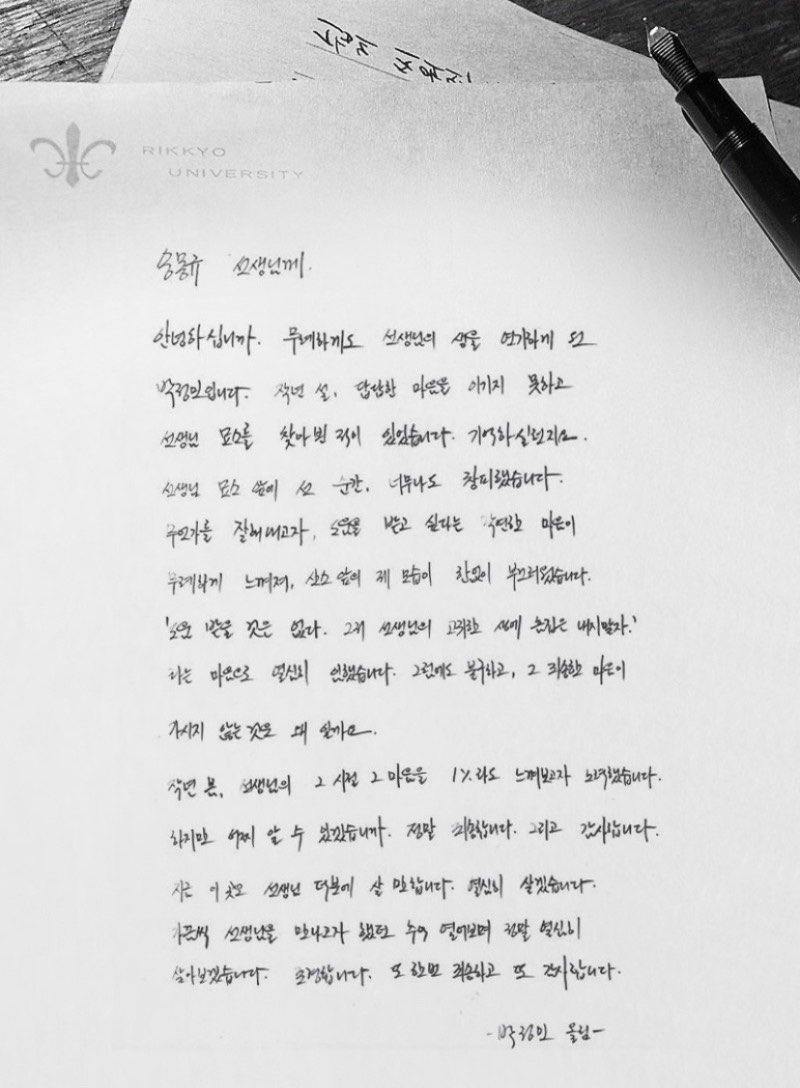 RIKKYO
UNIVERSITY
송몽규 선생님께.
안녕하십니까. 무례하게도 선생님의 생을 연기하게 된
박정민입니다. 작년 설, 답답한 마음을 이기지 못하고
선생님 묘소를 찾아뵌 적이 있었습니다. 기억하실런지요.
선생님 묘소 앞에 선 순간, 너무나도 창피했습니다.
무언가를 잘해내고자, 도움을 받고 싶다는 막연한 마음이
무례하게 느껴져, 산소 앞의 제 모습이 한없이 부끄러웠습니다.
'도움 받을 것은 없다. 그저 선생님의 고귀한 생에 흠집은 내지말자.'
라는 마음으로 열심히 임했습니다. 그럼에도 불구하고, 그 죄송한 마음이
가시지 않는 것은 왜 일까요.
작년 봄, 선생님의 그 시절 그 마음을 1%라도 느껴보고자 노력했습니다.
하지만 어찌 알 수 있겠습니까. 정말 죄송합니다. 그리고 감사합니다.
지금 이 곳은 선생님 덕분에 살 만합니다. 열심히 살겠습니다.
가끔씩 선생님을 만나고자 했던 수첩 열어보며 정말 열심히
살아보겠습니다. 존경합니다. 또 한번 죄송하고 또 감사합니다.
-박정민 올림-